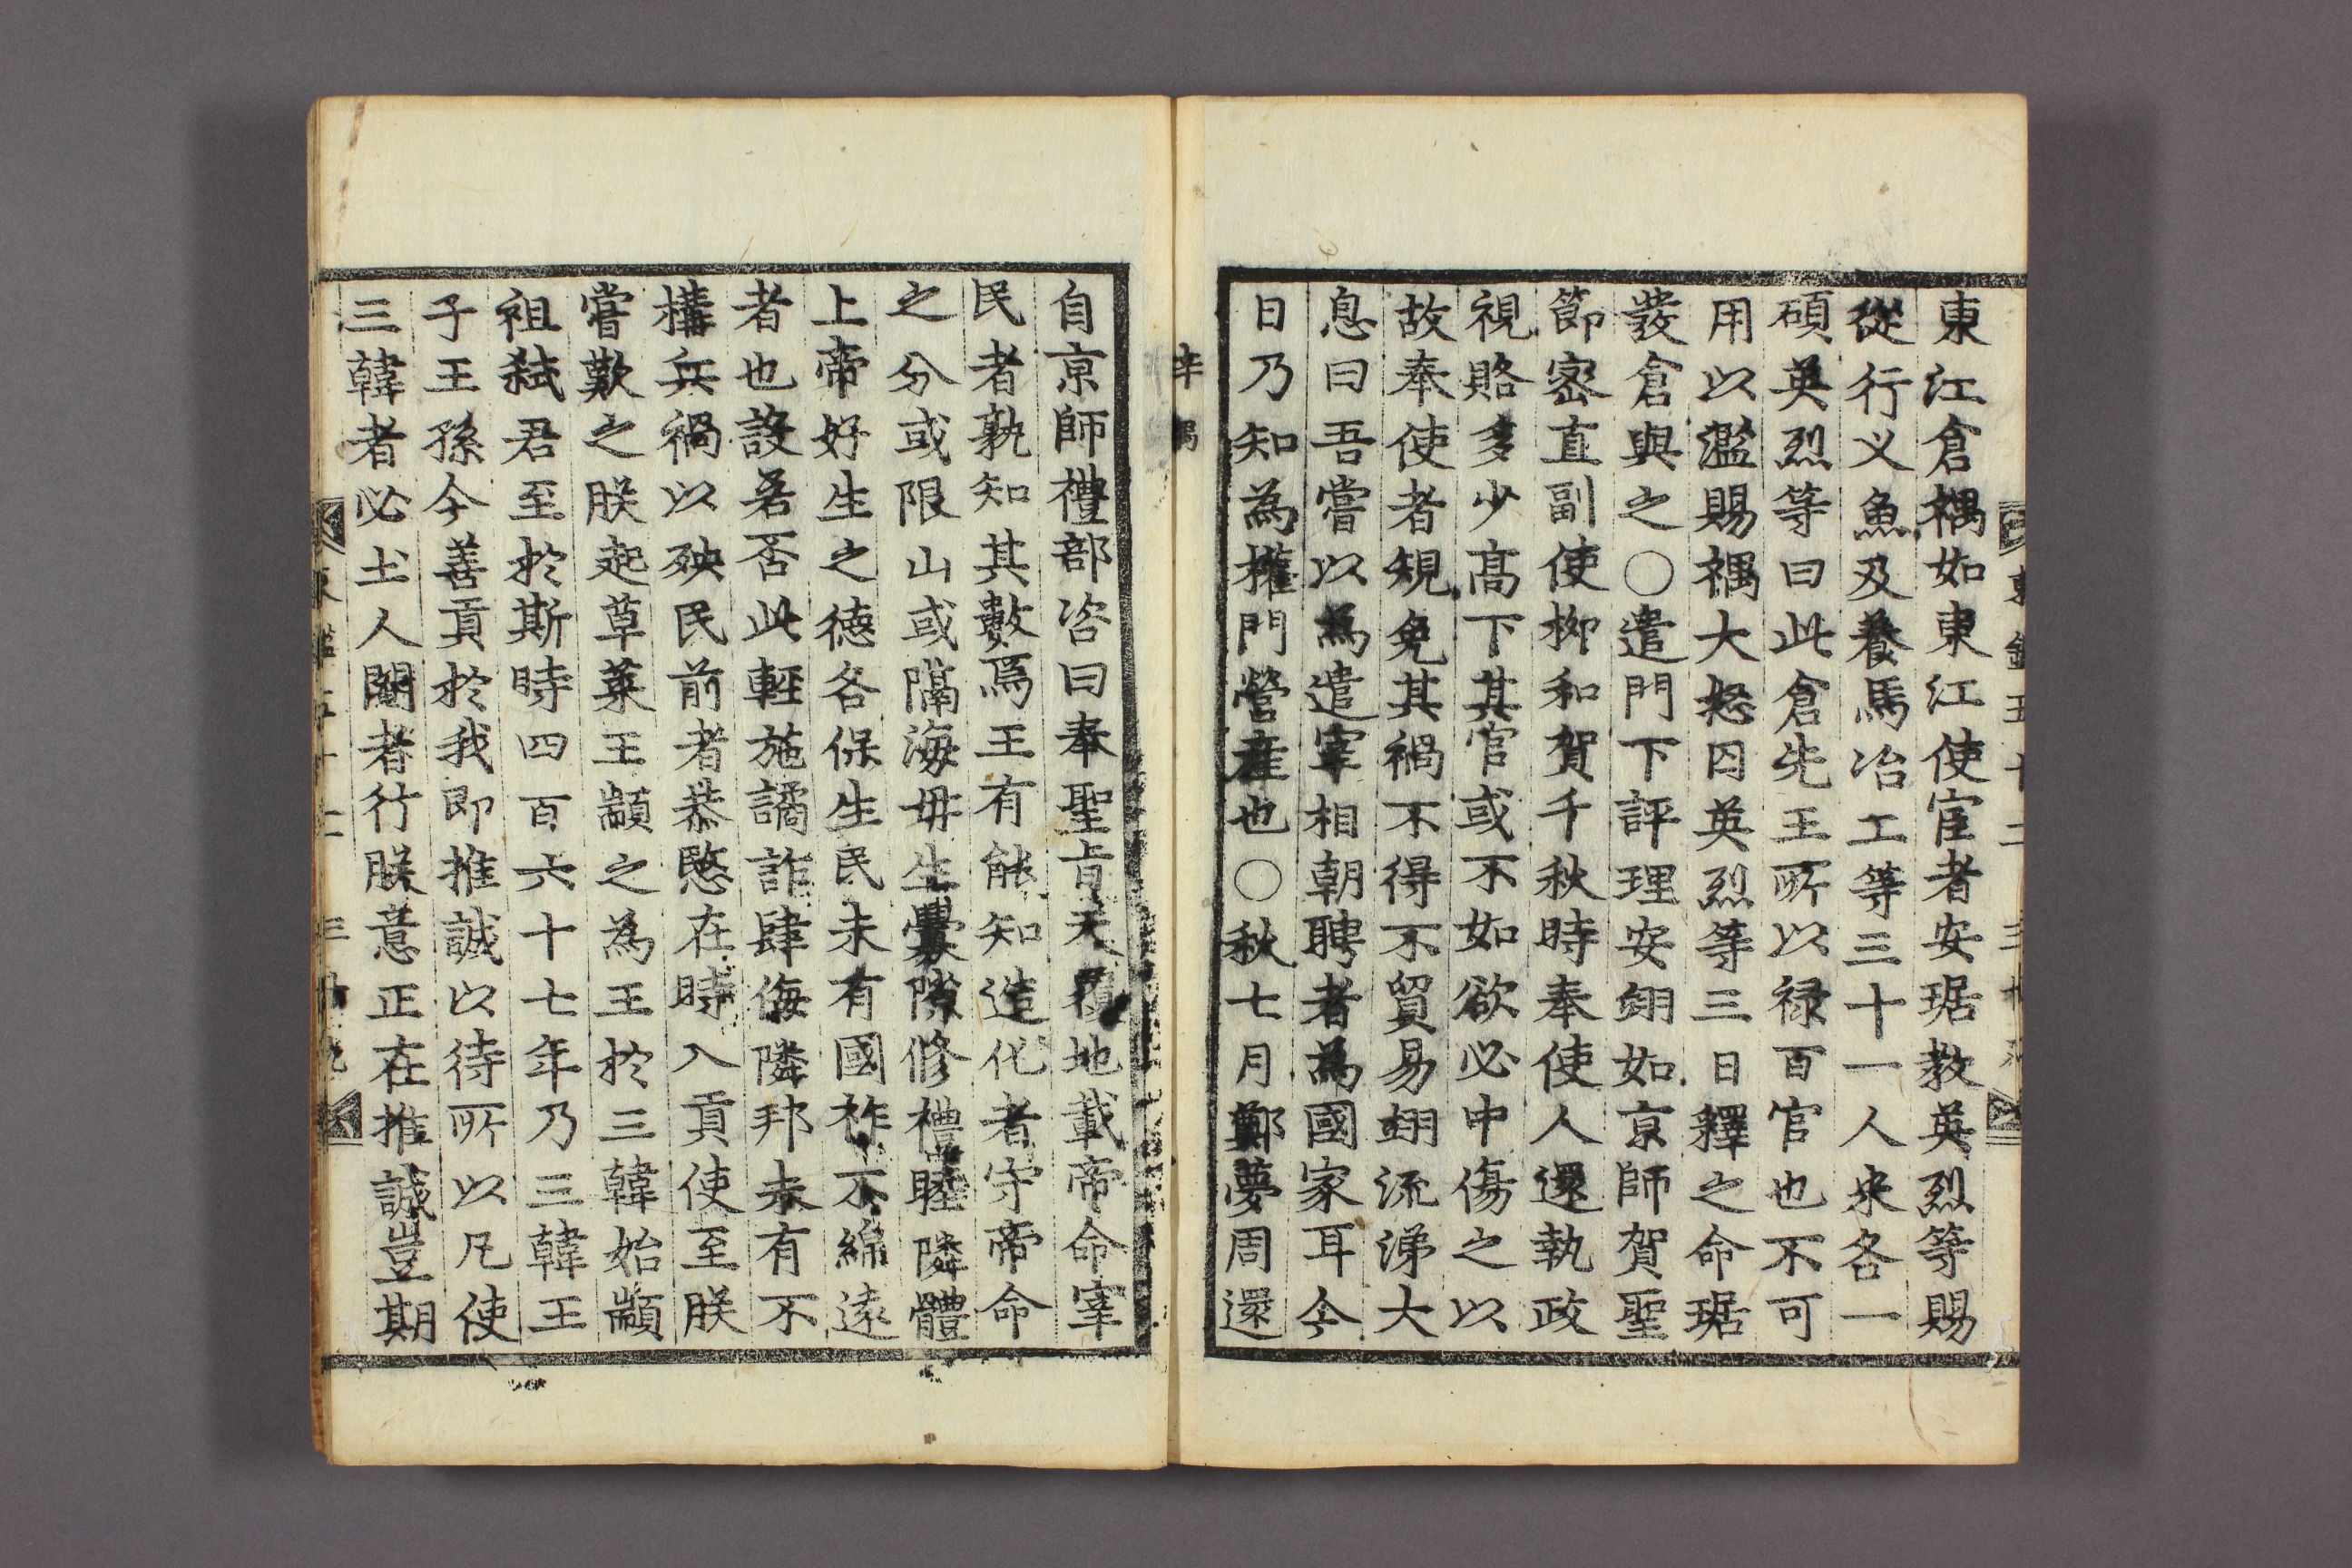 東江倉禑如東江使宦者安琚教英烈等賜
從行义魚及養馬冶工等三十一人米各一
碩英烈等曰此倉先王所以禄百官也不可
用以濫賜禑大怒囚英烈等三日釋之命琚
發倉與之○遣門下評理安翊如京師賀聖
節密直副使柳和賀千秋時奉使人還執政
視賂多少高下其官或不如欲必中傷之以
故奉使者規免其禍不得不貿易翊流涕大
息曰吾嘗以爲遣宰相朝聘者爲國家耳今
日乃知為權門營產也○秋七月鄭夢周還
辛禑
自京師禮部咨曰奉聖旨天覆地載帝命宰
民者孰知其數焉王有能知造化者守帝命
之分或限山或隔海毋生釁隙修禮睦隣體
上帝好生之德各保生民未有國祚不綿遠
者也設若否此輕施譎詐肆侮隣邦未有不
構兵禍以殃民前者恭愍在時入貢使至朕
嘗歎之朕起草萊王顓之為王於三韓始顓
祖弑君至於斯時四百六十七年乃三韓王
子王孫今善貢於我即推誠以待所以凡使
三韓者必土人閹者行朕意正在推誠豈期